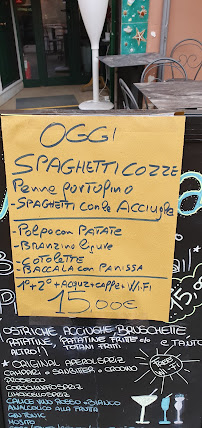 OGGI
SPAGHETTI COZZE
Penne portofino
- SPAGHETTI con le ACCIUGHE
- POLPO con PATATE
- Branzino ligure
- COTOLETTE
- BACCALA con PANISSA
1°+2°+Acqua+caffe+Wi-Fi
15,00€
OSTRICHE, ACCIUGHE, BRUSCHETTE
PATATINE, PATATINE FRITTE e/o
TOTANI FRITTI
E TANTO
ALTRO!!
* ORIGINAL APEROL SPRIZ
CAMPARI
PROSECCO
LIMONCELLO SPRIZ
CALICE VINO ROSSO o BIANCO
ANALCOLICO ALLA FRUTTA
GIN TONIC
MOJITO
FREE
WI-FI